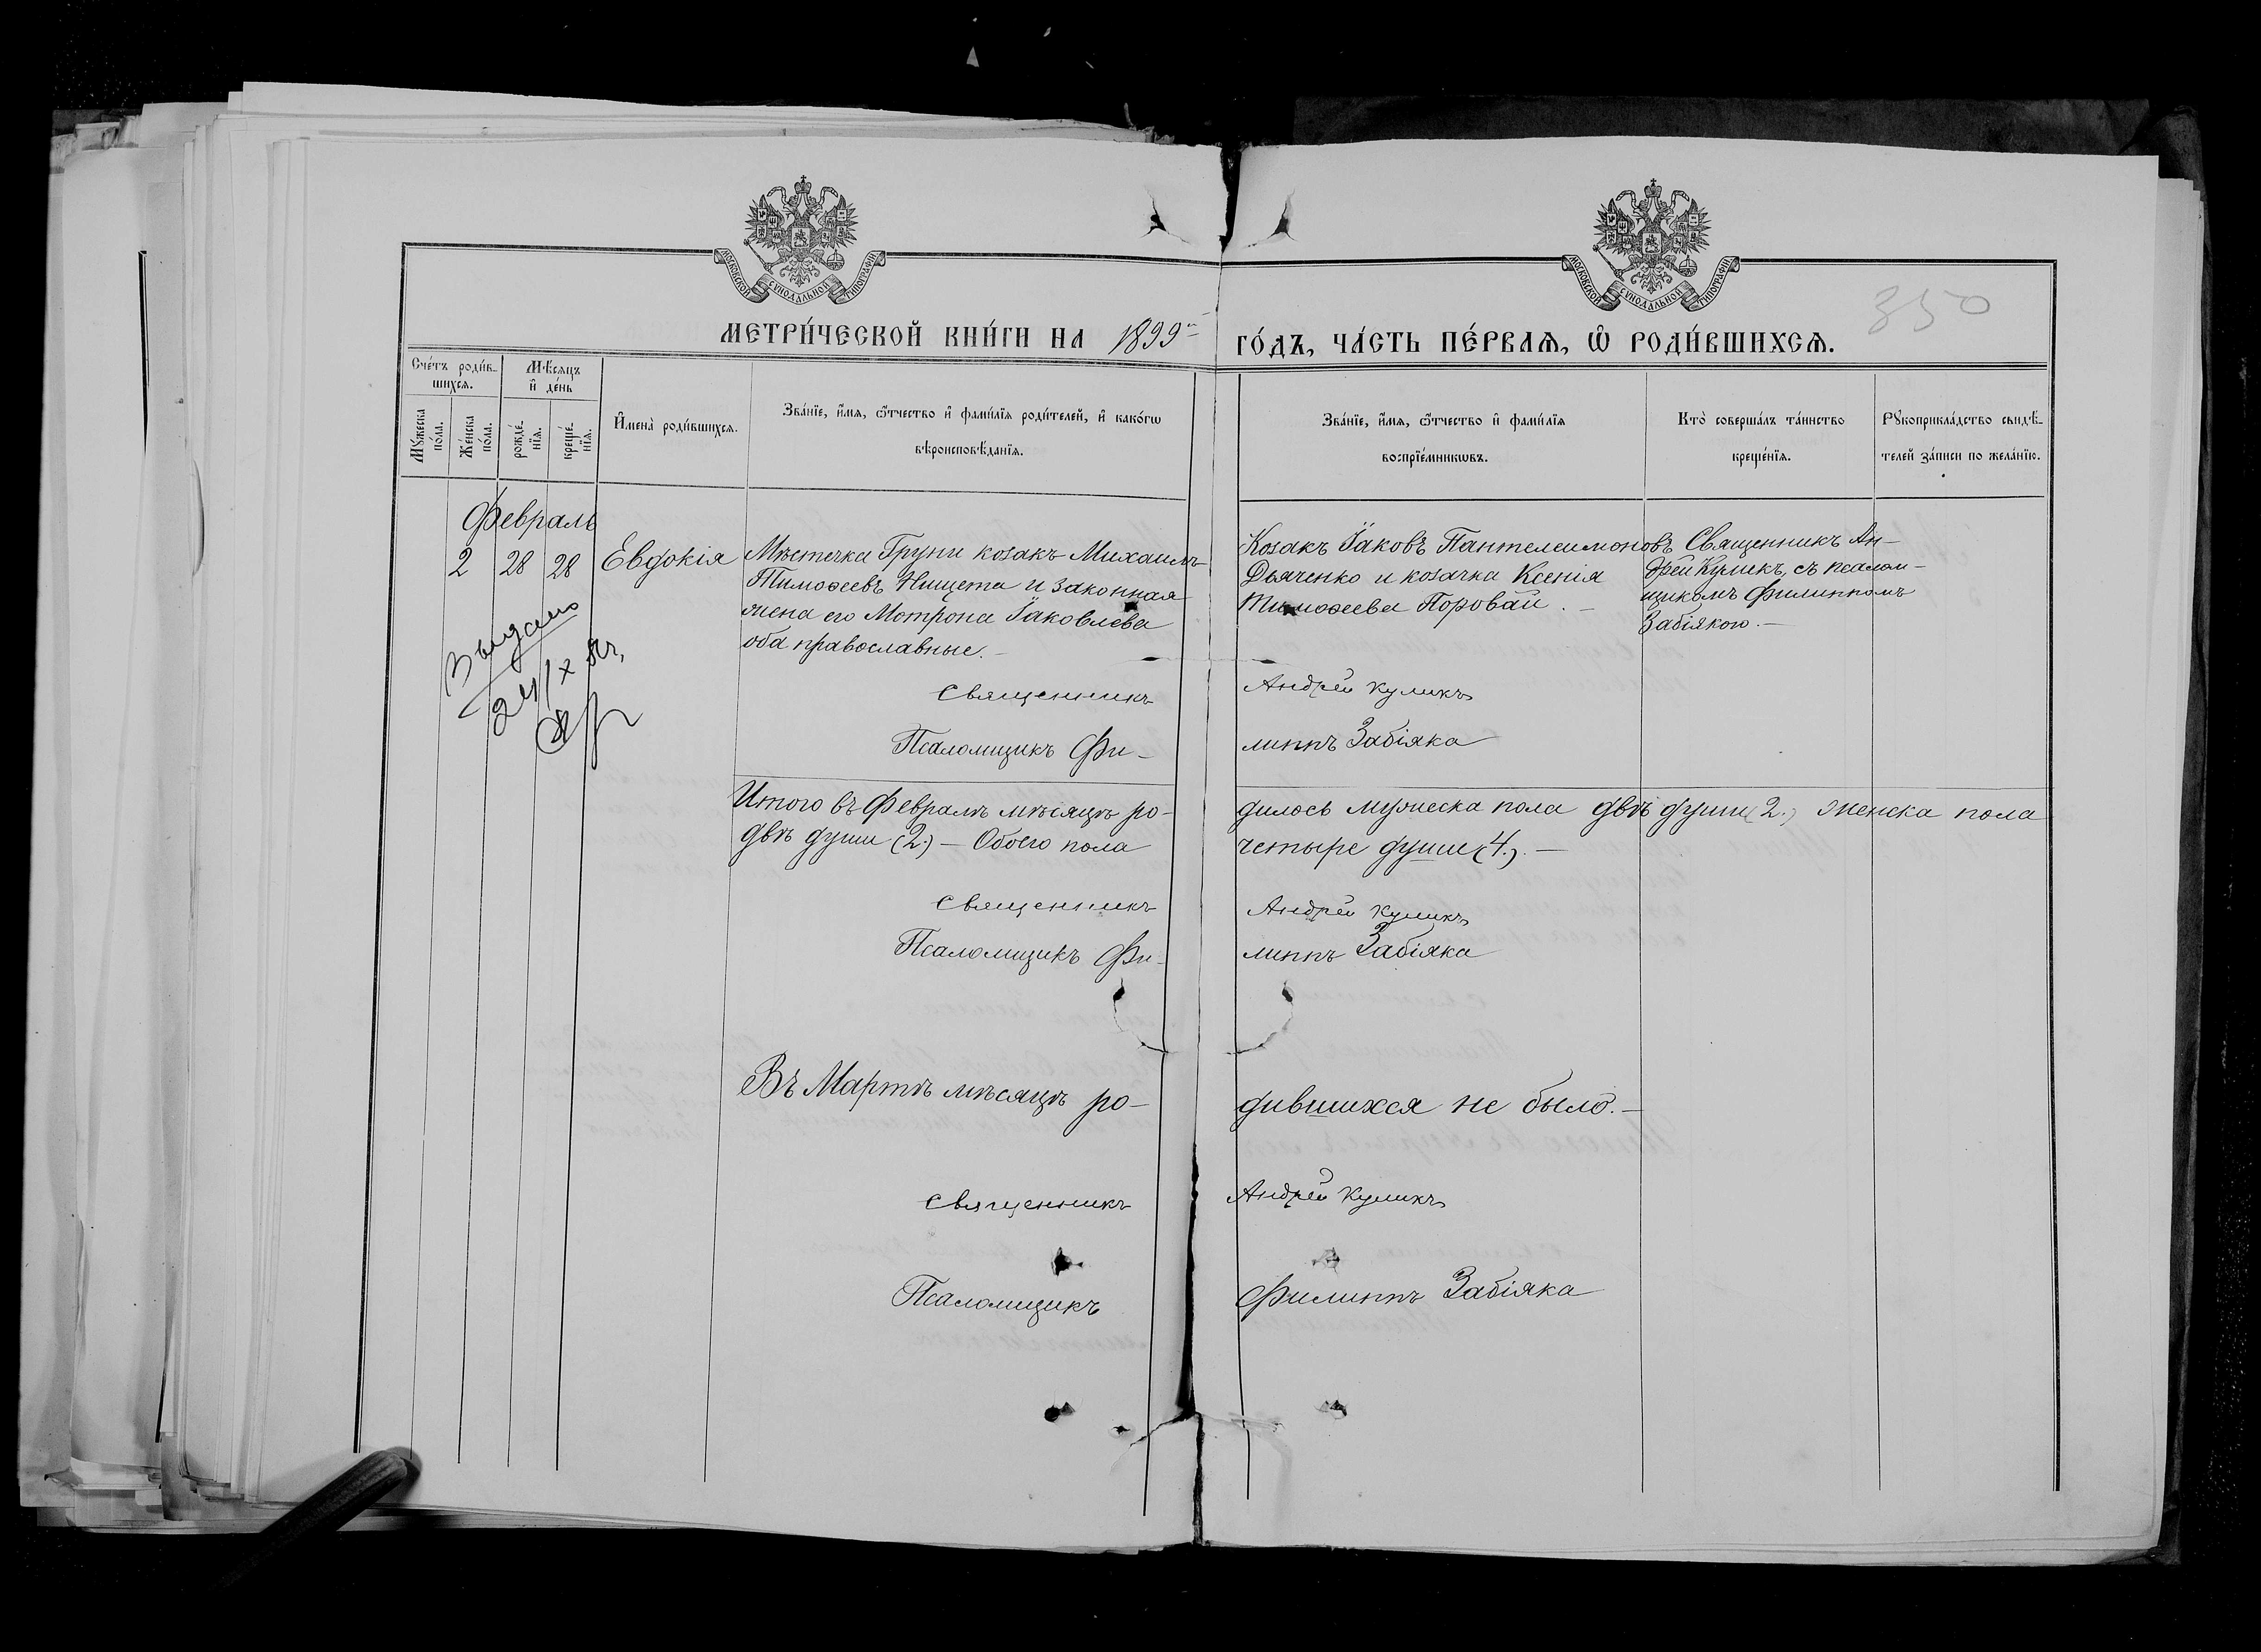 МОСКОВСКОЙ СѴНОДАЛЬНОЙ ТИПОГРАФІИ
МОСКОВСКОЙ СѴНОДАЛЬНОЙ ТИПОГРАФІИ
350
МЕТРИ́ЧЕСКОЙ КНИ́ГИ НА 1899й ГО́ДЪ, ЧА́СТЬ ПЕ́РВАѦ, Ѡ҆ РОДИ́ВШИХСѦ.
Сче́тъ роди́в-
шихсѧ.
Мѣ́сяцъ
и҆ де́нь
Мꙋ́жеска
по́ла.
Же́нска
по́ла.
рожде́-
нїѧ.
креще́-
нїѧ.
И҆мена̀ роди́вшихсѧ.
Зва́нїе, и҆́мѧ, ѻ҆́тчество и҆ фами́лїѧ роди́телей, и҆ како́гѡ
вѣроисповѣ́данїѧ.
Зва́нїе, и҆́мѧ, ѻ҆́тчество и҆ фами́лїѧ
воспрїе́мникѡвъ.
Кто̀ соверша́лъ та́инство
креще́нїѧ.
Рꙋкоприкла́дство свидѣ́-
телей за́писи по жела́нїю.
Февраль
2 28 28 Евдокія
Мѣстечка Груни козакъ Михаилъ
Тимоѳеевъ Нищета и законная
жена его Мотрона Іаковлева
оба православные.
Козакъ Іаковъ Пантелеимоновъ
Дьяченко и козачка Ксенія
Тимоѳеева Поровай.
Священникъ Ан-
дрей Куликъ, съ псалом-
щикомъ Филиппомъ
Забіякою.
Выдано
Священникъ Андрей Куликъ
Псаломщикъ Фи- липпъ Забіяка
Итого въ Февралѣ мѣсяцѣ ро- дилось мужеска пола двѣ души (2.) женска пола
двѣ души (2.) — Обоего пола четыре души (4.). —
Священникъ Андрей Куликъ
Псаломщикъ Фи- липпъ Забіяка
Въ Мартѣ мѣсяцѣ ро- дившихся не было. —
Священникъ Андрей Куликъ
Псаломщикъ Филиппъ Забіяка